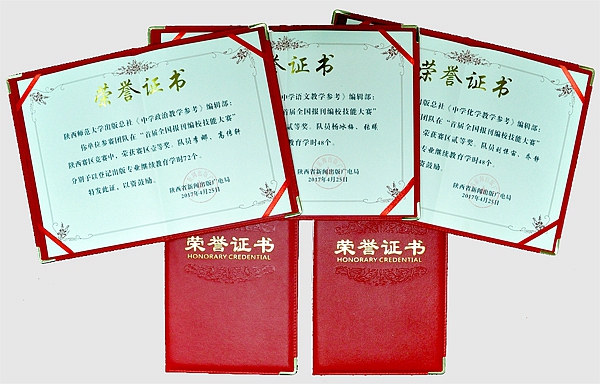 荣誉证书
陕西师范大学出版总社《中学政治教学参考》编辑部：
你单位参赛团队在“首届全国报刊编校技能大赛”
陕西赛区竞赛中，荣获赛区壹等奖，队员李娜、高伟轩
分别予以登记出版专业继续教育学时72个。
特发此证，以资鼓励。
陕西省新闻出版广电局
2017年4月25日
誉证书
《中学语文教学参考》编辑部：
“首届全国报刊编校技能大赛”
贰等奖，队员杨冰梅、
教育学时48个。
陕西省新闻出版广电局
2017年4月25日
荣誉证书
出版总社《中学化学教学参考》编辑部：
团队在“首届全国报刊编校技能大赛”
荣获赛区贰等奖，队员
专业继续教育学时48个。
以资鼓励。
陕西省新闻出版广电局
2017年4月25日
荣誉证书
HONORARY CREDENTIAL
荣誉证书
HONORARY CREDENTIAL